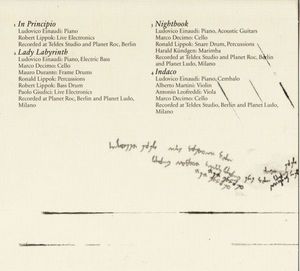 1 In Principio
Ludovico Einaudi: Piano
Robert Lippok: Live Electronics
Recorded at Teldex Studio and Planet Roc, Berlin
2 Lady Labyrinth
Ludovico Einaudi: Piano, Electric Bass
Marco Decimo: Cello
Mauro Durante: Frame Drums
Ronald Lippok: Percussions
Robert Lippok: Bass Drum
Paolo Giudici: Live Electronics
Recorded at Planet Roc, Berlin and Planet Ludo,
Milano
3 Nightbook
Ludovico Einaudi: Piano, Acoustic Guitars
Marco Decimo: Cello
Ronald Lippok: Snare Drum, Percussions
Harald Kündgen: Marimba
Recorded at Teldex Studio, Planet Roc, Berlin
and Planet Ludo, Milano
4 Indaco
Ludovico Einaudi: Piano, Cembalo
Alberto Martini: Violin
Antonio Leofreddi: Viola
Marco Decimo: Cello
Recorded at Teldex Studio, Berlin and Planet Ludo,
Milano